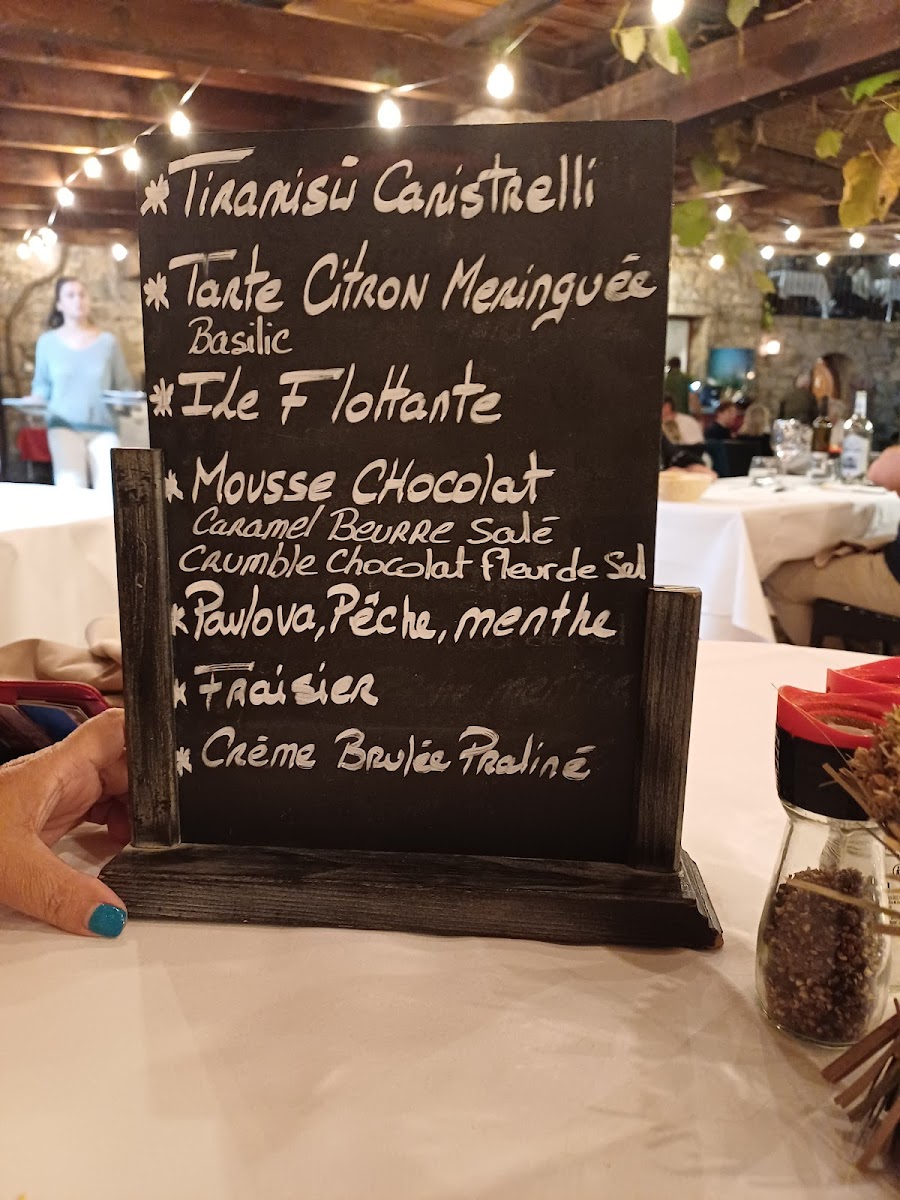 * Tiramisù Canistrelli
* Tarte Citron Meringuée
Basilic
* Ile Flottante
* Mousse CHocolat
Caramel Beurre Salé
Crumble Chocolat fleur de Sel
* Pavlova, Pêche, menthe
* Fraisier
* Crème Brulée Praliné